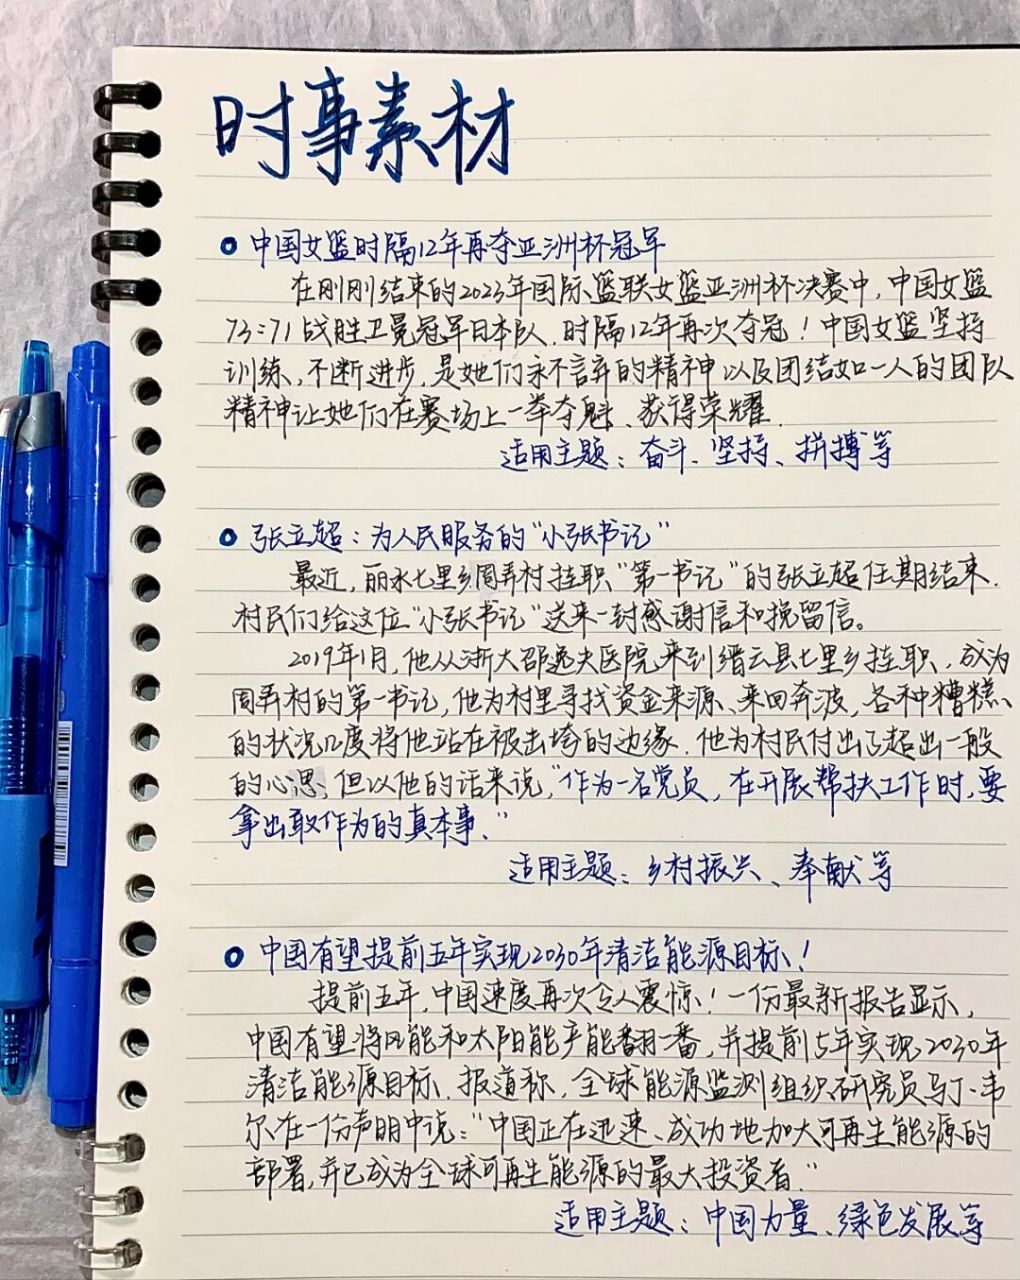 时事素材
中国女篮时隔12年再夺亚洲杯冠军
在刚刚结束的2023年国际篮联女篮亚洲杯决赛中,中国女篮
73:71战胜卫冕冠军日本队,时隔12年再次夺冠!中国女篮坚持
训练、不断进步,是她们永不言弃的精神以及团结如一人的团队
精神让她们在赛场上一举夺魁、获得荣耀.
适用主题:奋斗、坚持、拼搏等
张立超:为人民服务的“小张书记”
最近,丽水七里乡周弄村挂职“第一书记”的张立超任期结束.
村民们给这位“小张书记”送来一封感谢信和挽留信。
2019年1月,他从浙大邵逸夫医院来到缙云县七里乡挂职、成为
周弄村的第一书记,他为村里寻找资金来源、来回奔波,各种糟糕
的状况几度将他站在被击垮的边缘.他为村民付出了超出一般
的心思,但以他的话来说,“作为一名党员,在开展帮扶工作时,要
拿出敢作为的真本事.”
适用主题:乡村振兴、奉献等
中国有望提前五年实现2030年清洁能源目标!
提前五年,中国速度再次令人震惊!一份最新报告显示,
中国有望将风能和太阳能产能翻一番,并提前5年实现2030年
清洁能源目标.报道称,全球能源监测组织研究员马丁·韦
尔在一份声明中说:“中国正在迅速、成功地加大可再生能源的
部署,并已成为全球可再生能源的最大投资者.”
适用主题:中国力量、绿色发展等